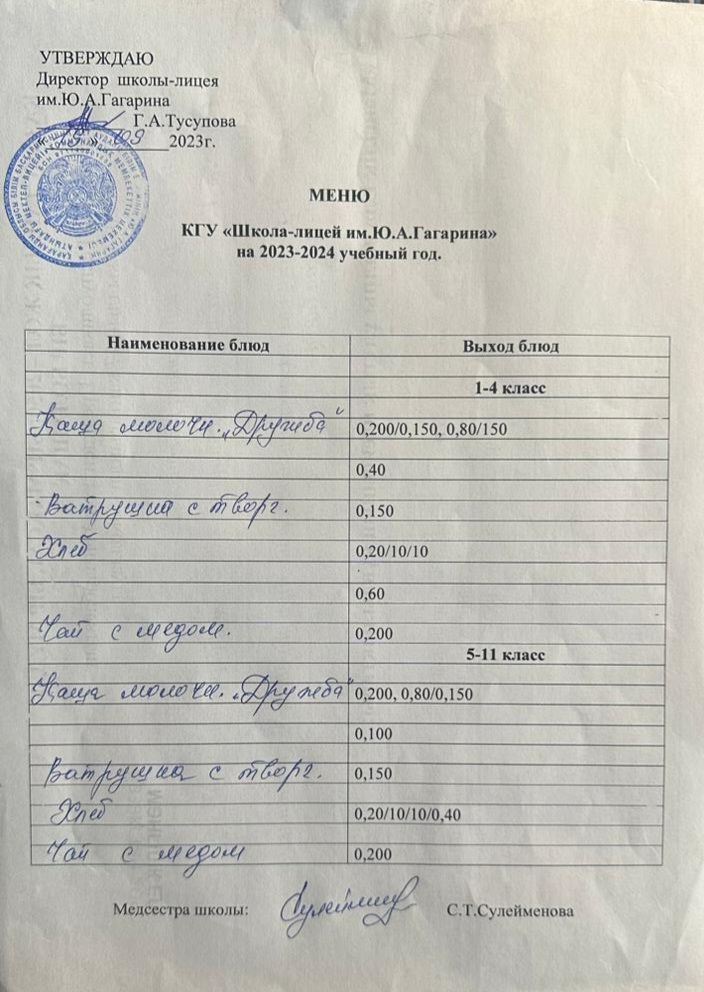 УТВЕРЖДАЮ
Директор школы-лицея
им.Ю.А.Гагарина
Г.А.Тусупова
2023г.
МЕНЮ
КГУ «Школа-лицей им.Ю.А.Гагарина»
на 2023-2024 учебный год.
Наименование блюд Выход блюд
1-4 класс
Каша молочн. „Дружба" 0,200/0,150, 0,80/150
0,40
Ватрушка с творг. 0,150
Хлеб 0,20/10/10
0,60
Чай с медом. 0,200
5-11 класс
Каша молочн. „Дружба" 0,200, 0,80/0,150
0,100
Ватрушка с творг. 0,150
Хлеб 0,20/10/10/0,40
Чай с медом 0,200
Медсестра школы: С.Т.Сулейменова